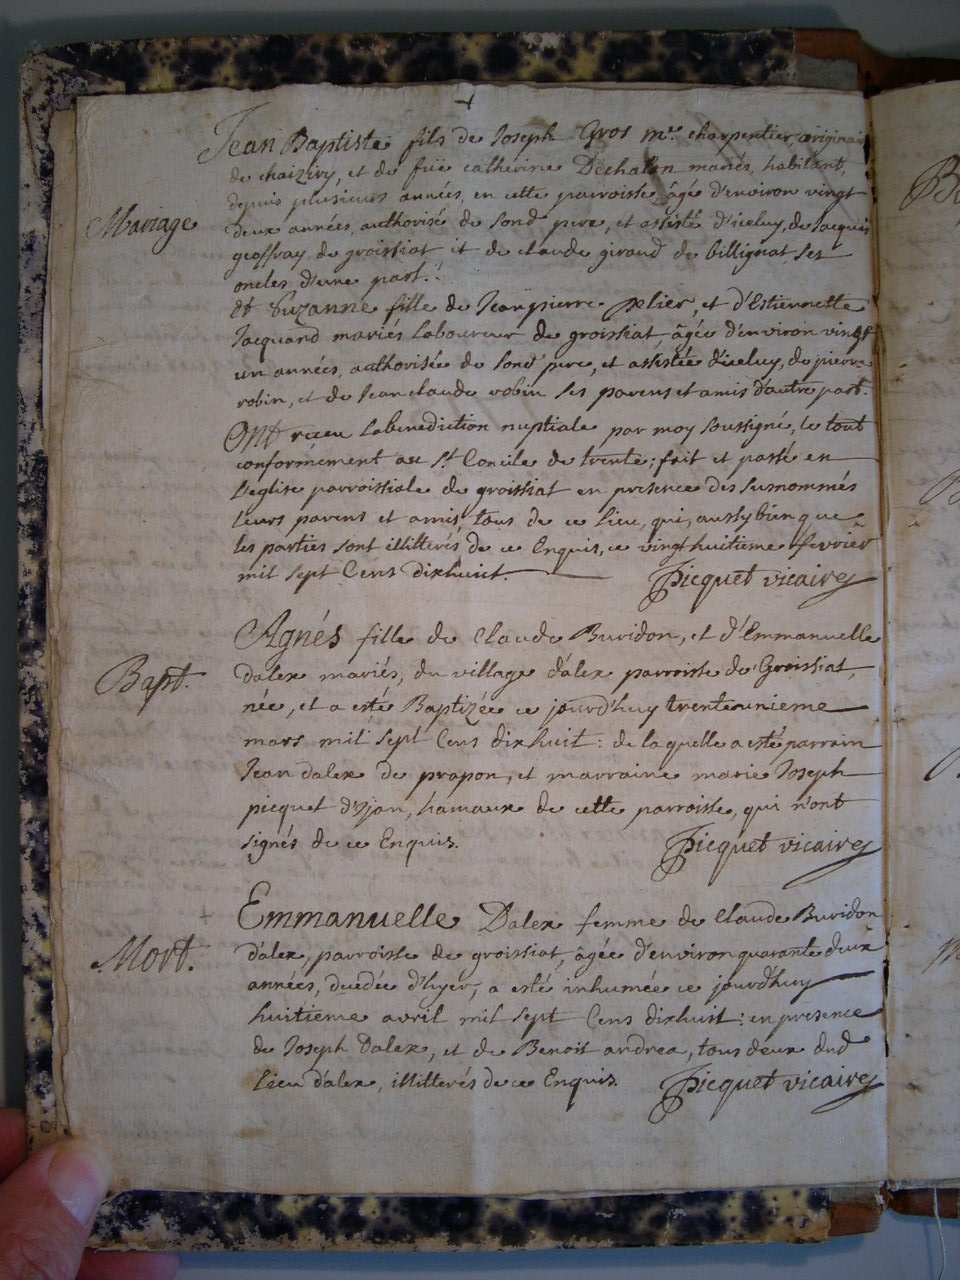 Jean Baptiste fils de Joseph Gros me. charpentier, originai
de chaizery, et de füe catherine Dechalon mariés, habitant,
depuis plusieurs années, en cette parroisse, âgé d'environ vingt
Mariage deux années, authorisé de sond. pere, et assisté d'iceluy, de Jacques
geoffray de groissiat et de claude giraud de billignat, ses
oncles, d'une part.
et Suzanne fille de Jeanpierre plier, et d'Estiennette
Jacquand mariés laboureur de groissiat, âgée d'environ vingt
un années, authorisée de sond. pere, et assistée d'iceluy, de pierre
robin, et de Jean claude robin ses parens et amis d'autre part.
Ont receu labenediction nuptiale par moy soussigné, le tout
conformément au St. Concile de trente; fait et passé en
l'eglise parroissiale de groissiat en presence des susnommés
leurs parens et amis, tous de ce lieu, qui, aussybien que
les parties sont illitterés de ce Enquis, ce vingt huitieme fevrier
mil sept Cens dixhuit. Picquet vicaire
Agnés fille de Claude Buvidon, et d'Emmanuelle
Bapt. dalex mariés, du village d'alex parroisse de Groissiat,
née, et a esté Baptizée ce jourd'huy trenteunieme
mars mil sept Cens dixhuit: de laquelle a esté parrain
Jean dalex de prapon, et marraine marie Joseph
picquet d'yjan, hamaux de cette parroisse, qui n'ont
signés de ce Enquis. Picquet vicaire
Emmanuelle Dalex femme de Claude Buvidon
Mort. d'alex, parroisse de groissiat, âgée d'environ quarante deux
années, decedée d'hyer, a esté inhumée ce jourd'huy
huitieme avril mil sept Cens dixhuit: en presence
de Joseph Dalex, et de Benoit andrea, tous deux dud.
Lieu d'alex, illitterés de ce Enquis. Picquet vicaire